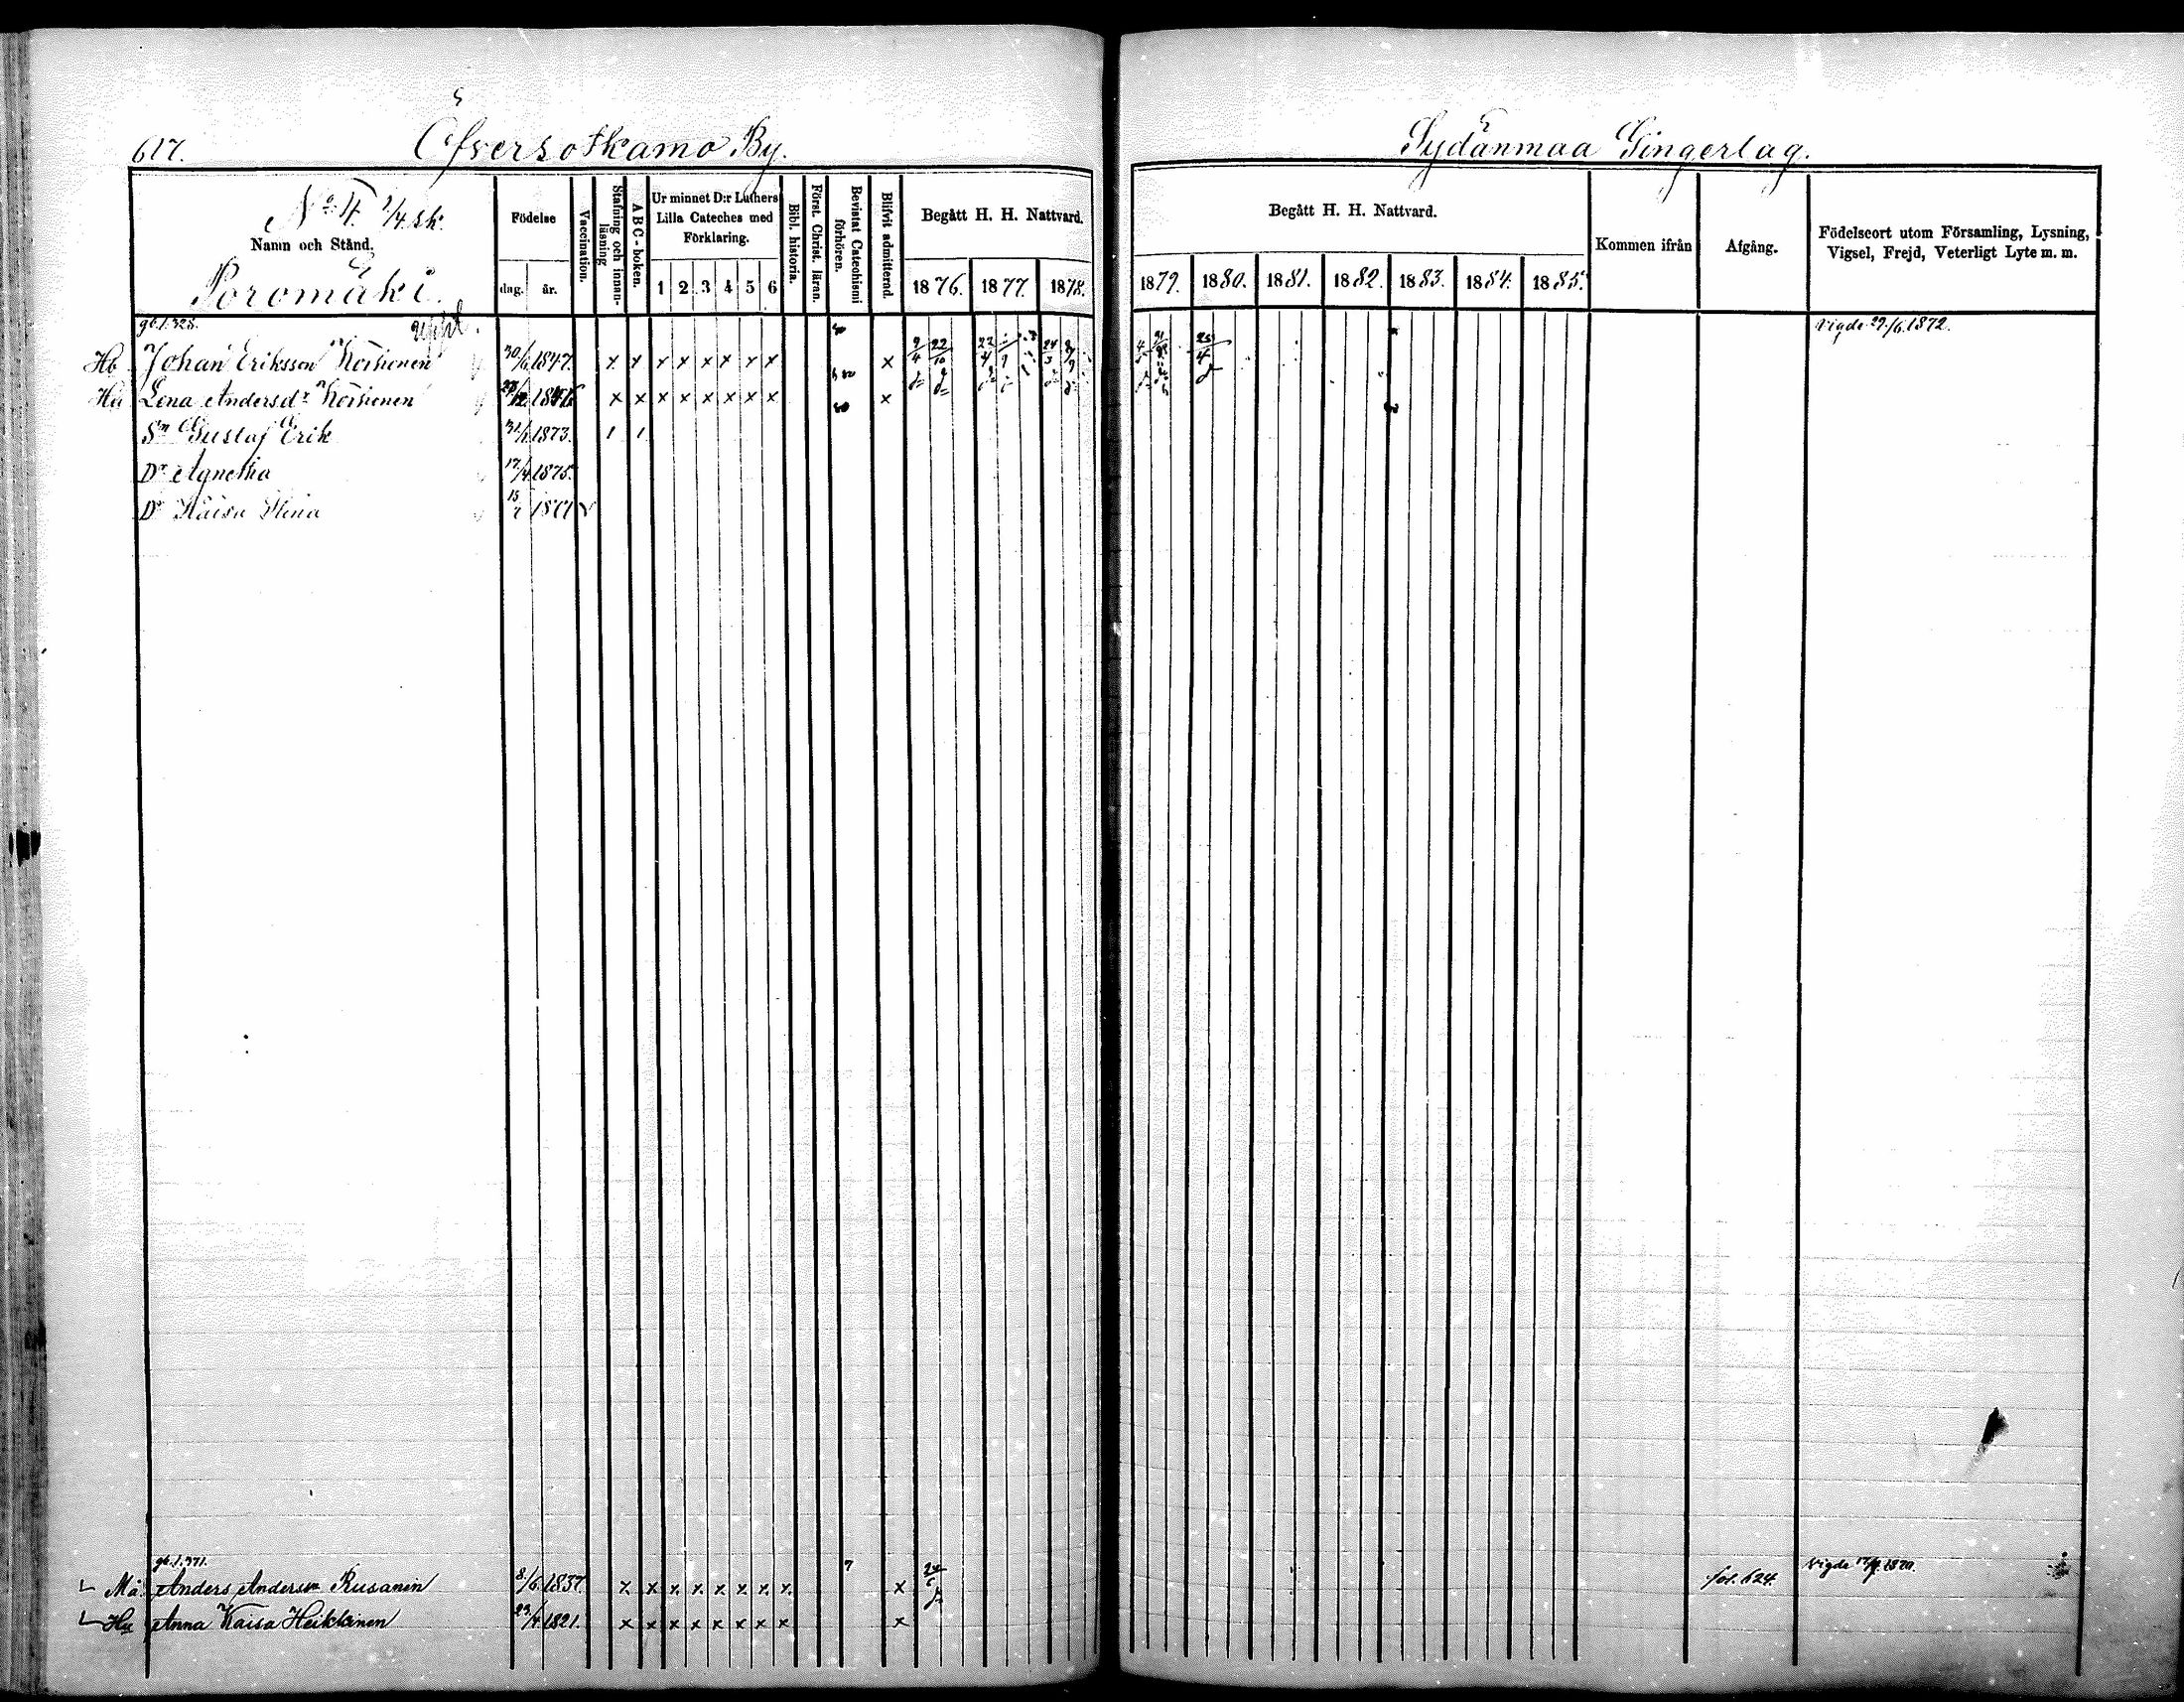 617. Öfversotkamo By. Sydänmaa Gingerlag.
No 4. 1/4 sk.
Namn och Stånd.
Poromäki.
Födelse
dag. år.
Vaccination.
Stafning och innanläsning
ABC-boken.
Ur minnet D:r Luthers Lilla Cateches med Förklaring.
1 2 3 4 5 6
Bibl. historia.
Först. Christ. läran.
Bevistat Catechismi förhören.
Blifvit admitterad.
Begått H. H. Nattvard.
1876. 1877. 1878.
Begått H. H. Nattvard.
1879. 1880. 1881. 1882. 1883. 1884. 1885.
Kommen ifrån
Afgång.
Födelseort utom Församling, Lysning, Vigsel, Frejd, Veterligt Lyte m. m.
gb. 1.328. Vigde 29/6 1872.
Hb Johan Eriksson 30/6 1847. x x x x x x x x x 9/4 22/10
Hu Lena Andersdr x x x x x x x x x
Sn Gustaf Erik 31/1 1873. 1 1
Dr Agnetha 17/4 1875.
Dr Kaisa Stina
gb. 1.371. 7
Må Anders Andersson Rusanin 8/6 1837. x x x x x x x x x fol. 624. Vigde 1870.
Hu Anna Kaisa Heikkinen 23/4 1821. x x x x x x x x x